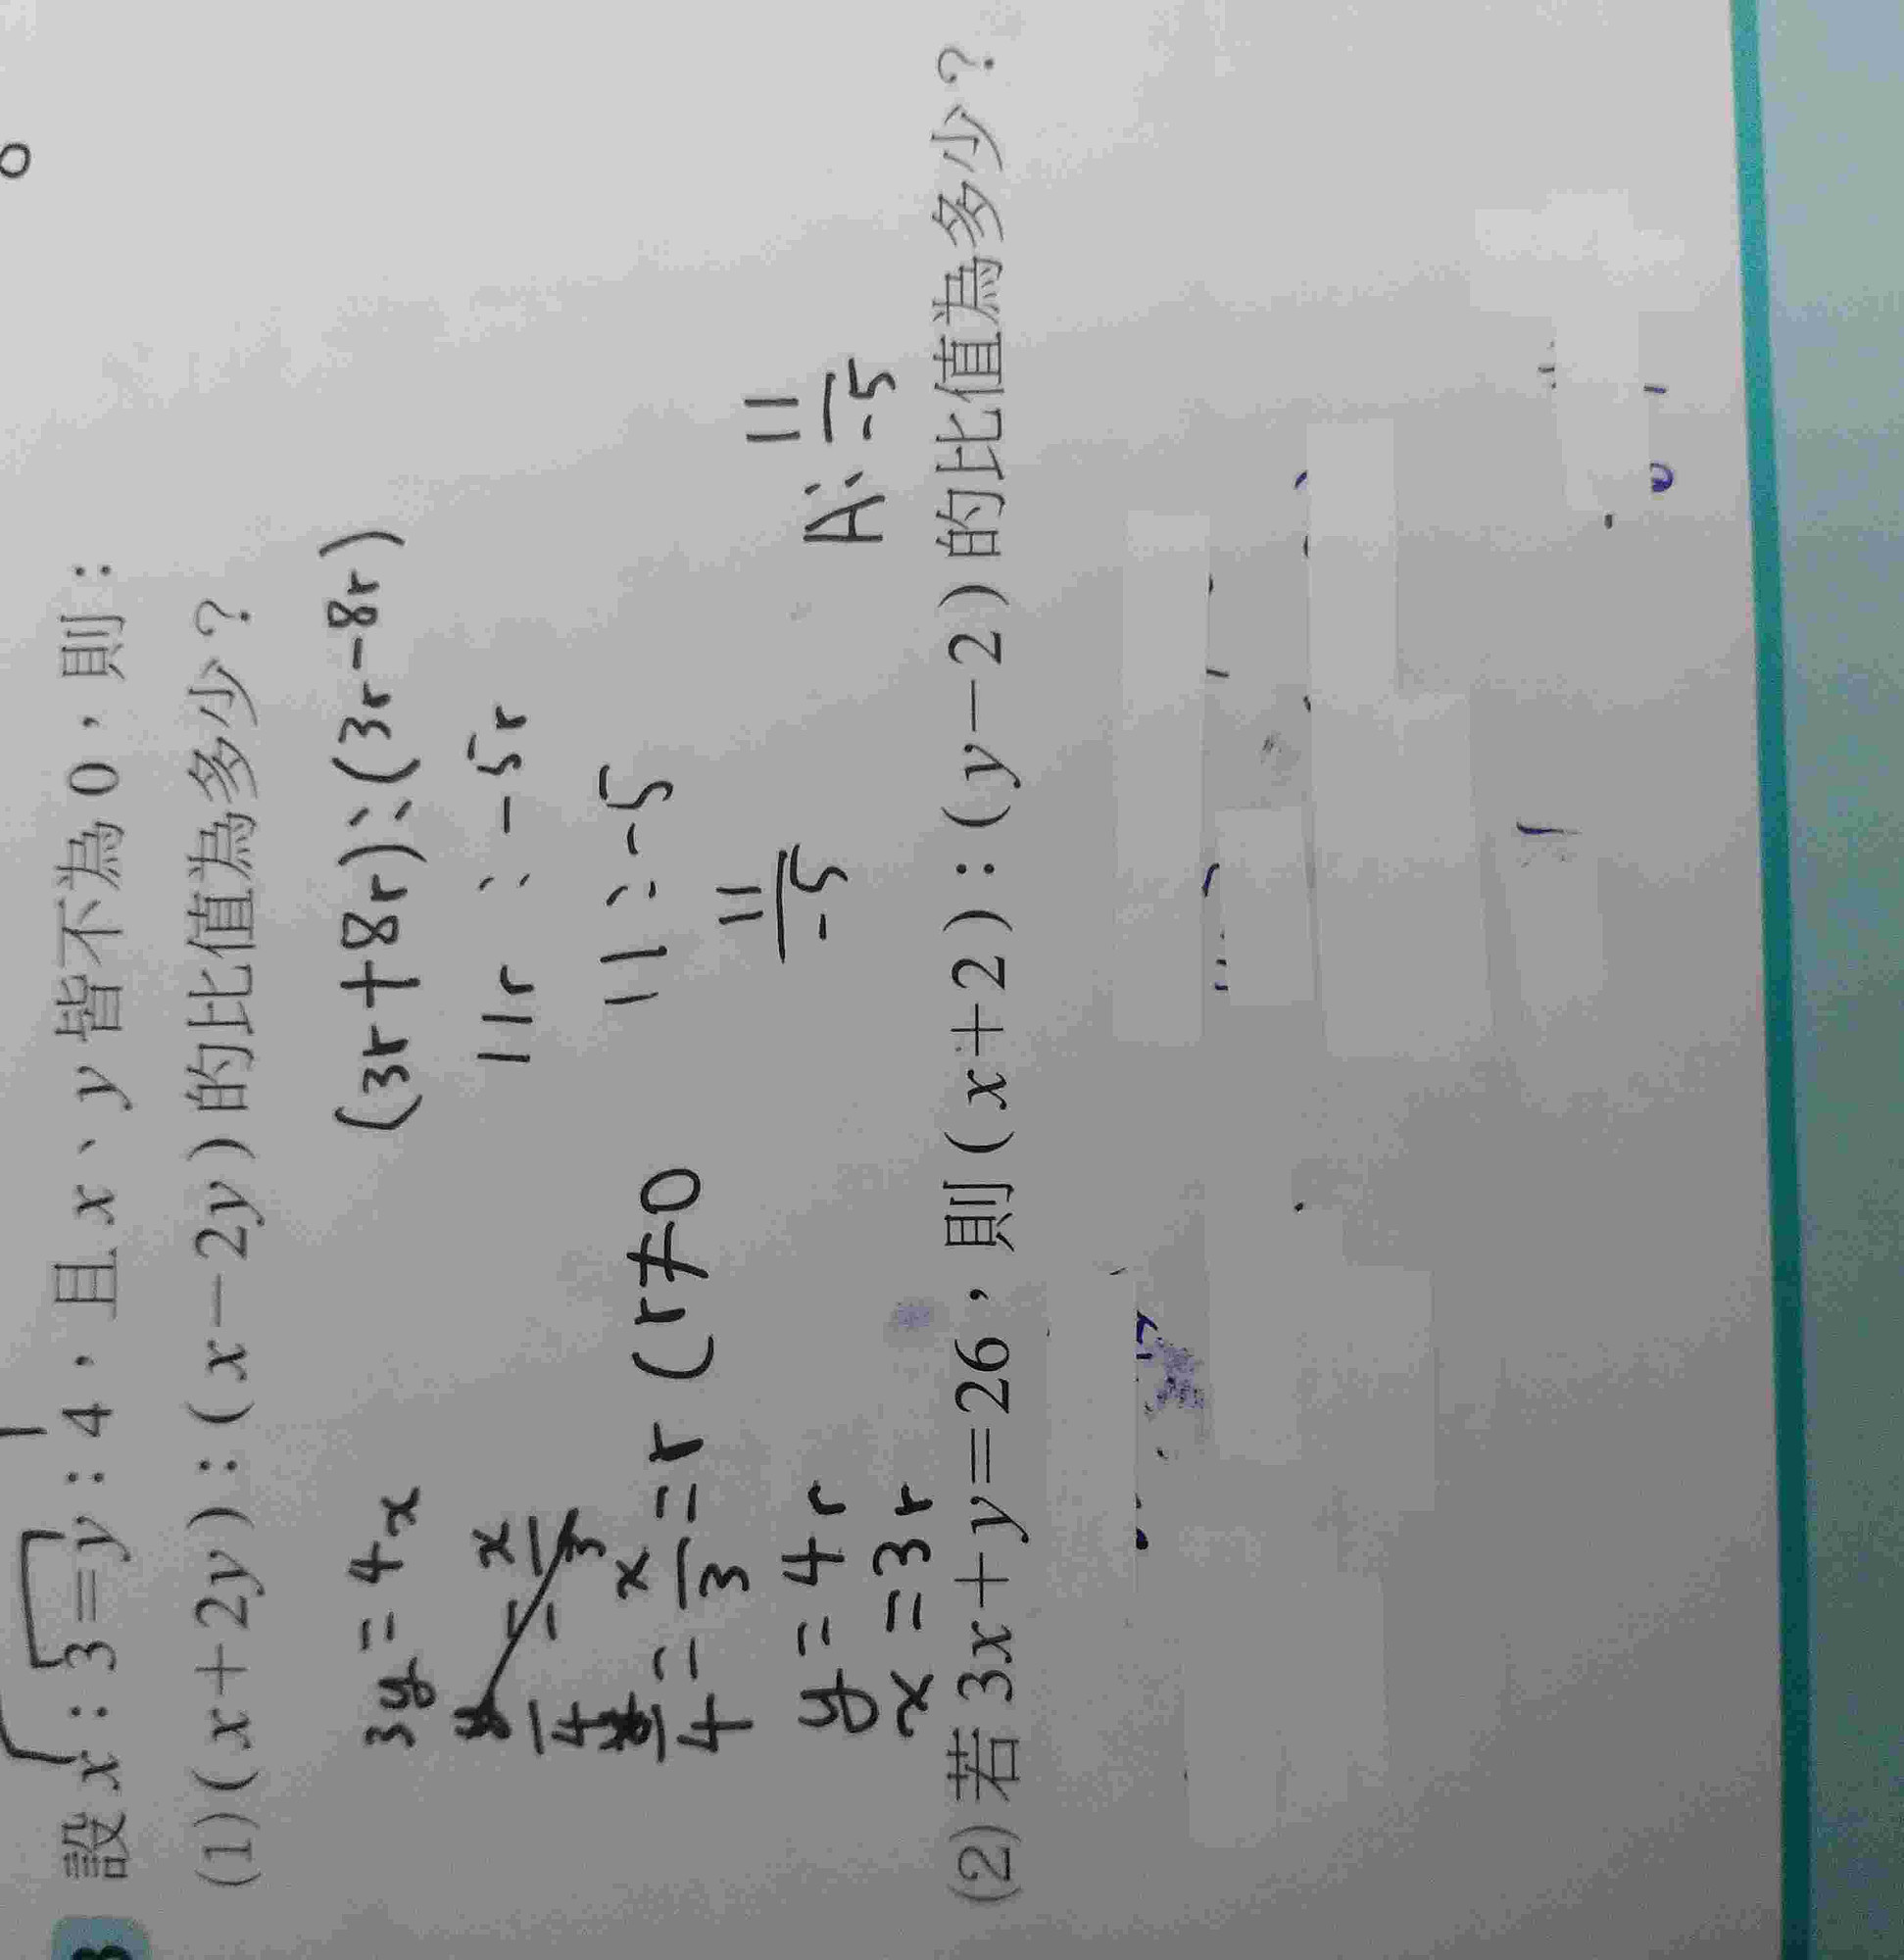 設 x : 3 = y : 4,且 x、y 皆不為 0,則:
(1) ( x + 2y ) : ( x - 2y ) 的比值為多少?
3y = 4x
(3r + 8r) : (3r - 8r)
11r : -5r
x/3
4
y/4 = x/3 = r (r ≠ 0
11 : -5
11/-5
y = 4r
x = 3r
A: 11/-5
(2) 若 3x + y = 26,則 ( x + 2 ) : ( y - 2 ) 的比值為多少?